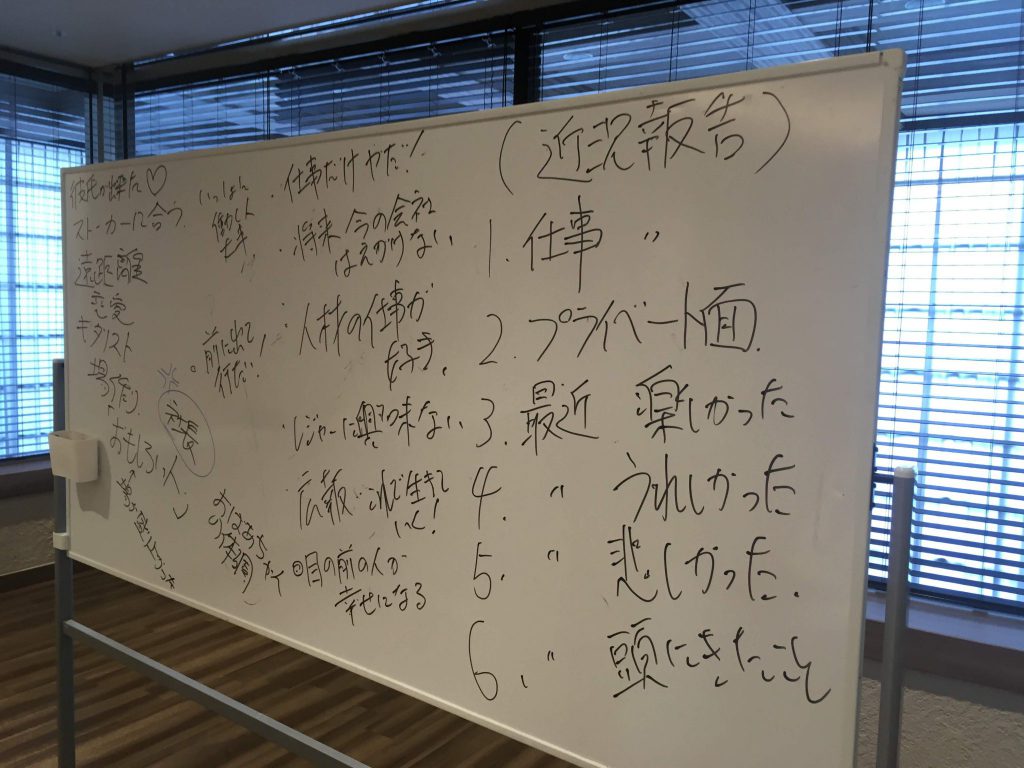 (近況報告)
1. 仕事 〃
2. プライベート面.
3. 最近 楽しかった
4. 〃 うれしかった
5. 〃 悲しかった.
6. 〃 頭にきたこと
・仕事だけヤだ!
・将来 今の会社
はえのけない
・人材の仕事が
好き.
興味ない
広報 これで生きて
いく!
目の前の人が
幸せになる
いっしょに
前に出て
行だ!
スト・カーに合う.
遠距離
恋愛
キタリスト
場作り.
おもしろい人.